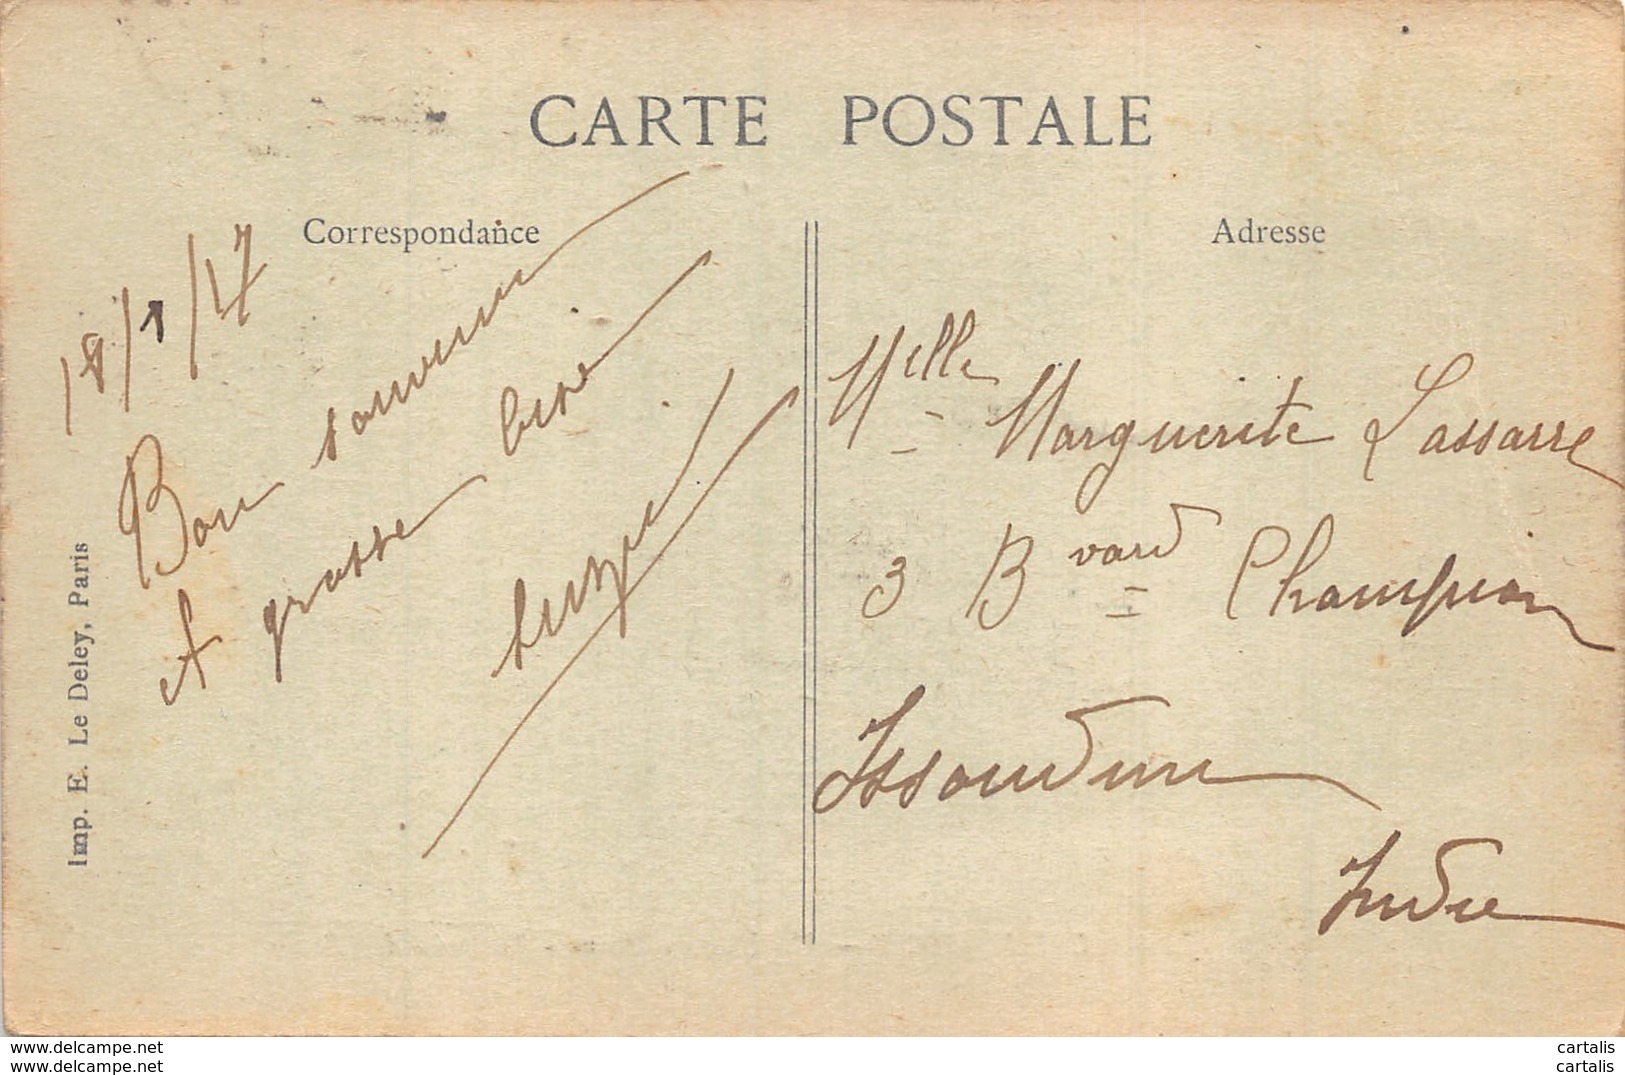 CARTE POSTALE
Correspondance
Adresse
18/1/17
Bon souvenir
et grosse bise
Imp. E. Le Deley, Paris
Melle Marguerite Lassarre
3 Bvard Champion
Issoudun
Indre
www.delcampe.net
www.delcampe.net
cartalis
cartalis